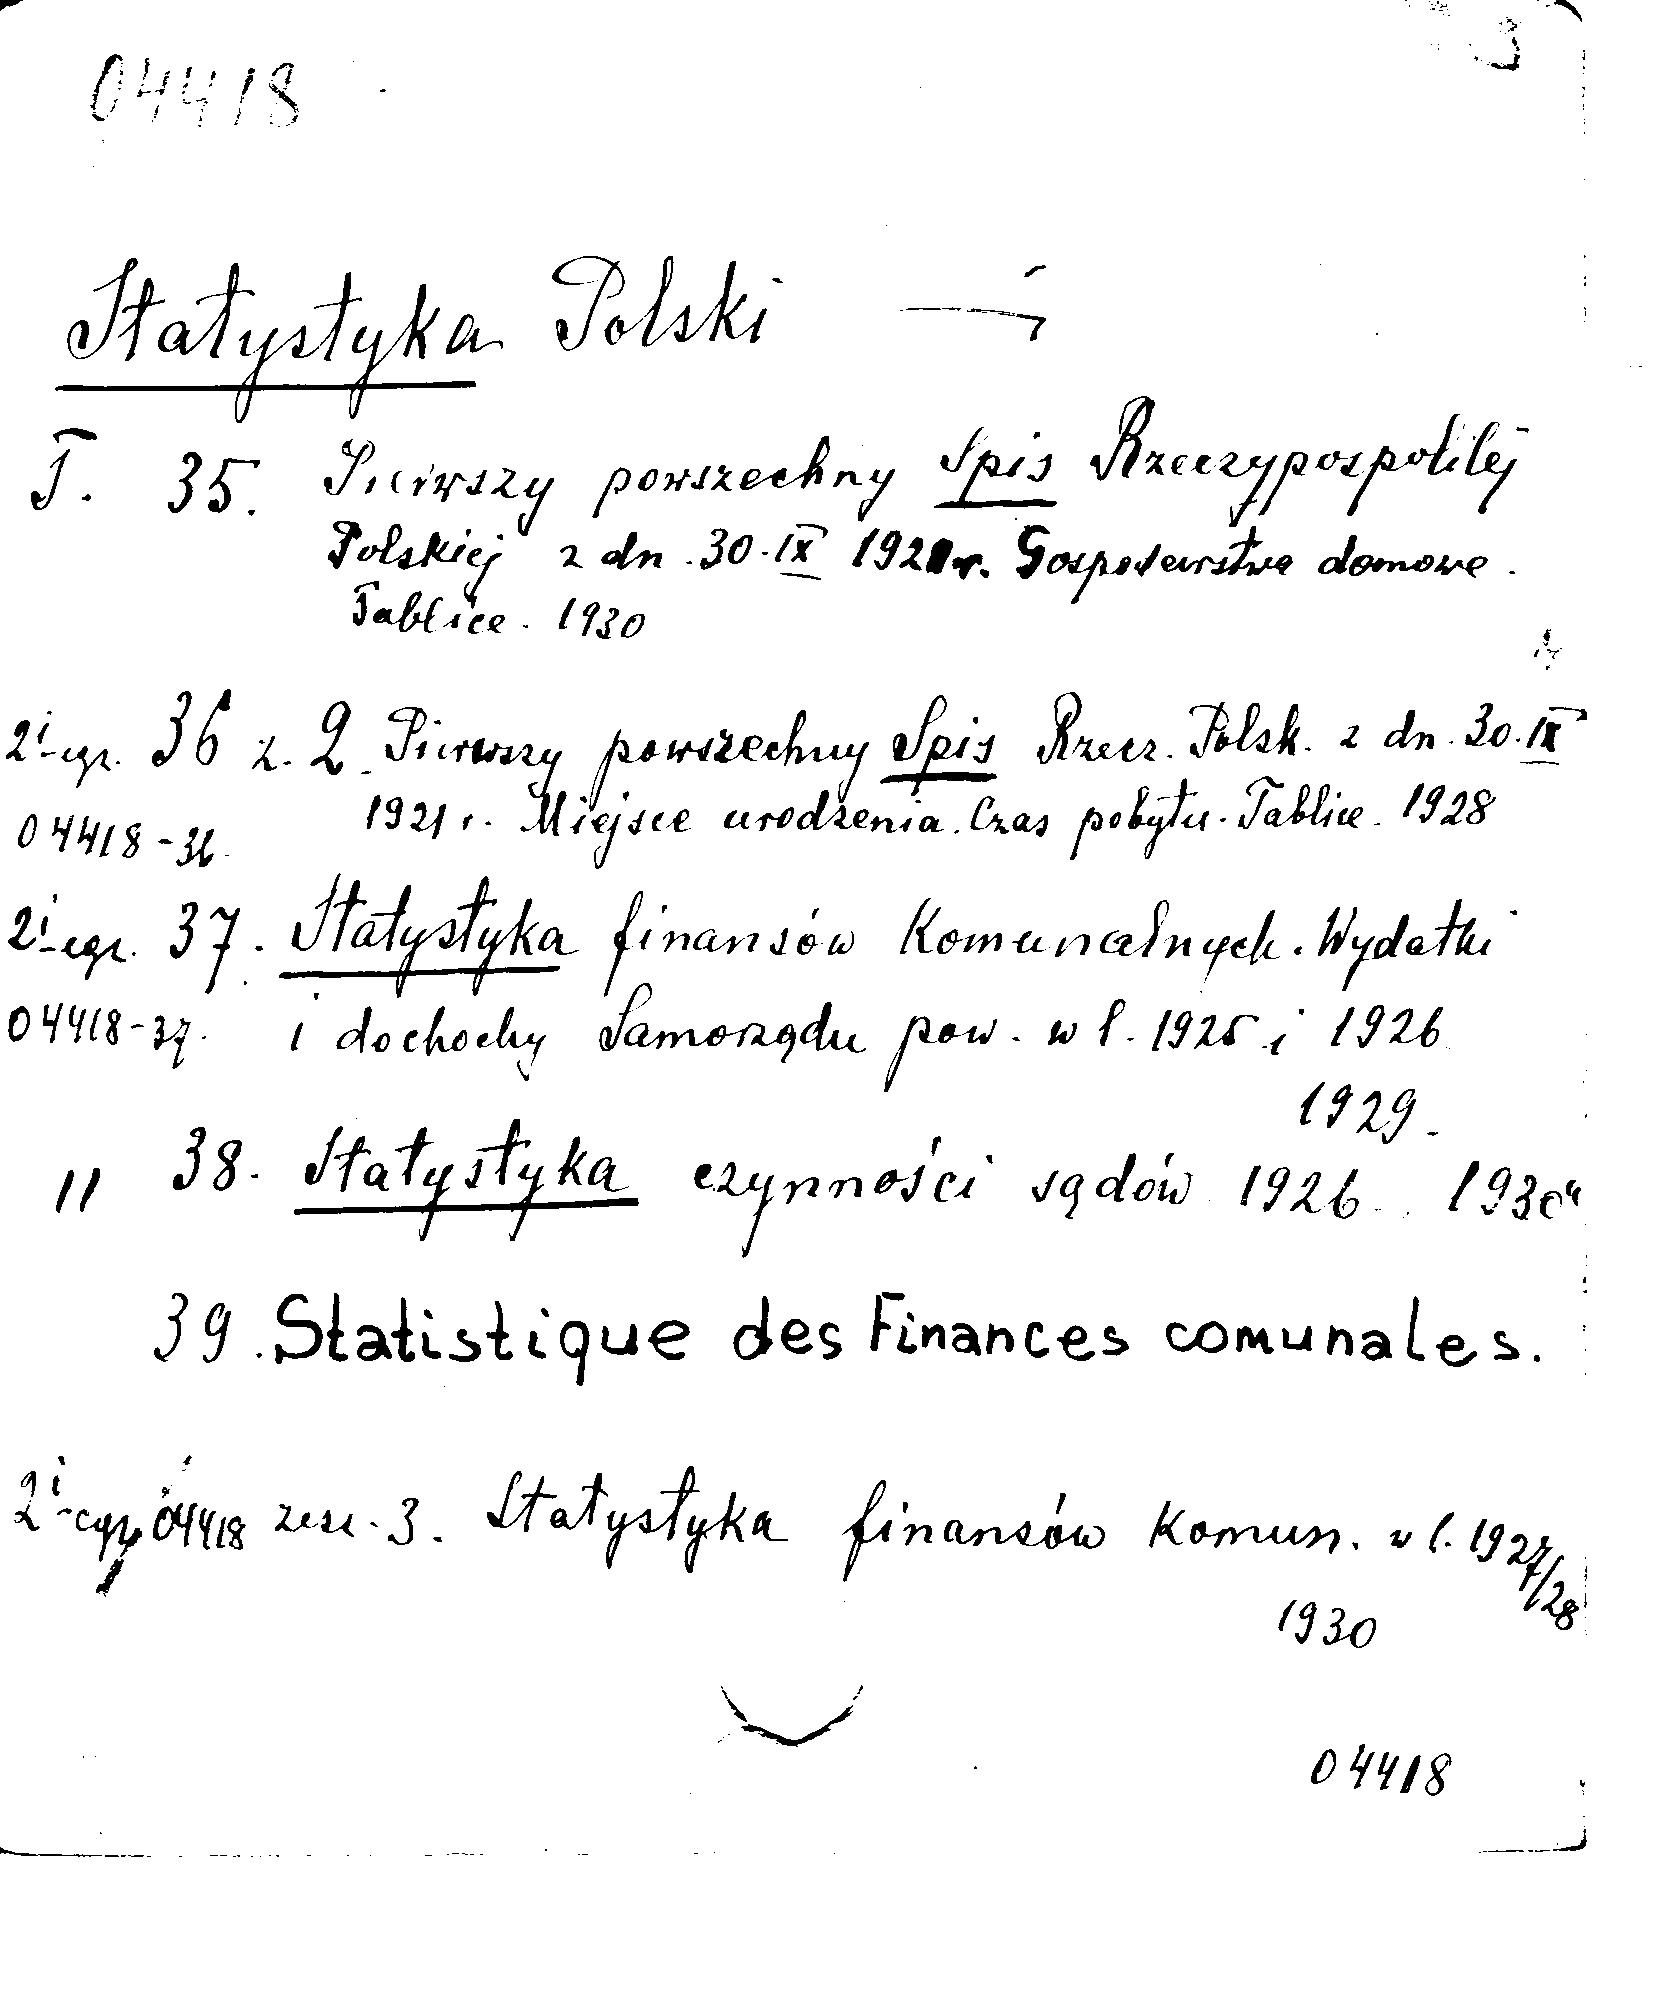 04418
3
Statystyka Polski
T. 35. Pierwszy powszechny Spis Rzeczypospolitej
Polskiej z dn. 30.IX 1921 r. Gospodarstwa domowe.
Tablice. 1930
2i-egz. 36 z. 2 Pierwszy powszechny Spis Rzecz. Polsk. z dn. 30.IX
1921 r. Miejsce urodzenia. Czas pobytu. Tablice. 1928
04418-36
2i-egz. 37. Statystyka finansów Komunalnych. Wydatki
04418-37. i dochochy Samorządu pow. w l. 1925 i 1926
1929.
" 38. Statystyka czynności sądów 1926 1930
39. Statistique des Finances comunales.
2i-egz. 04418 zesz. 3. Statystyka finansów Komun. w l. 1927/28
1930
04418